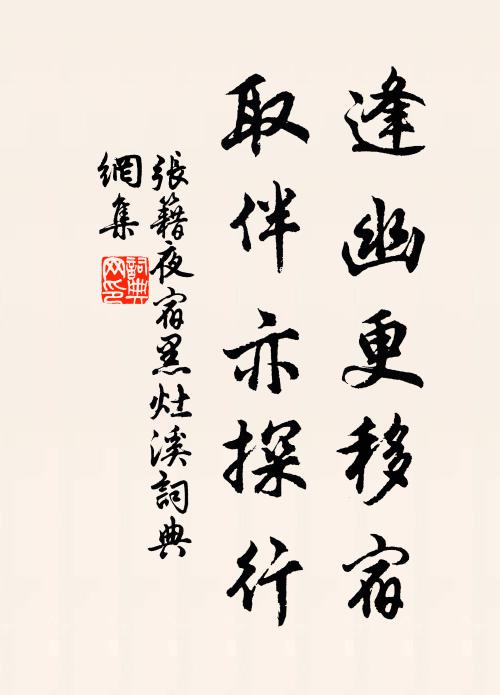 逢幽更移宿
取伴亦探行
張籍夜宿黑灶溪詞典
網集
詞典
网印